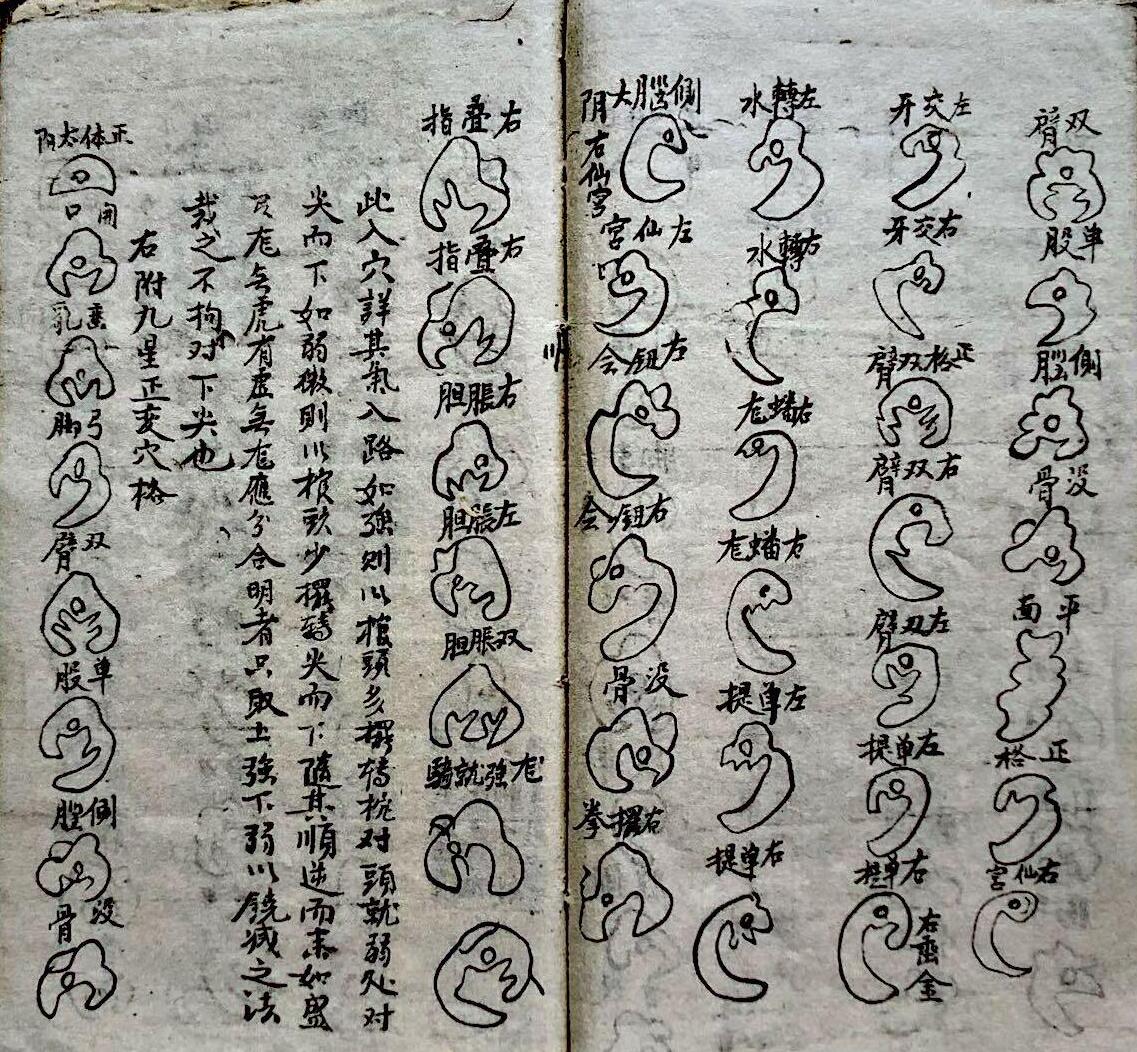 双臂
单股
側腦
没骨
平面
正格
右仙宮
左交牙
右交牙
正格双臂
右双臂
左双臂
左单提
右单提
右垂金
左轉水
右轉水
右蟠龙
右蟠龙
左单提
右单提
側腦大阴
右仙宮
左仙宮
左鈕会
右鈕会
没骨
右擺拳
右叠指
右叠指
右脹胆
左脹胆
双脹胆
龙強就騎
此入穴詳其氣入路如強則以棺頭多擺轉棺对頭就弱处对
尖而下如弱微則以棺頭少擺轉尖而下随其順逆而未如盛
及龙無虎有虚無龙應分合明者只取土強下弱以饒减之法
裁之不拘对下尖也
右附九星正变穴格
正体太阴
開口
垂乳
弓脚
双臂
单股
側腦
没骨